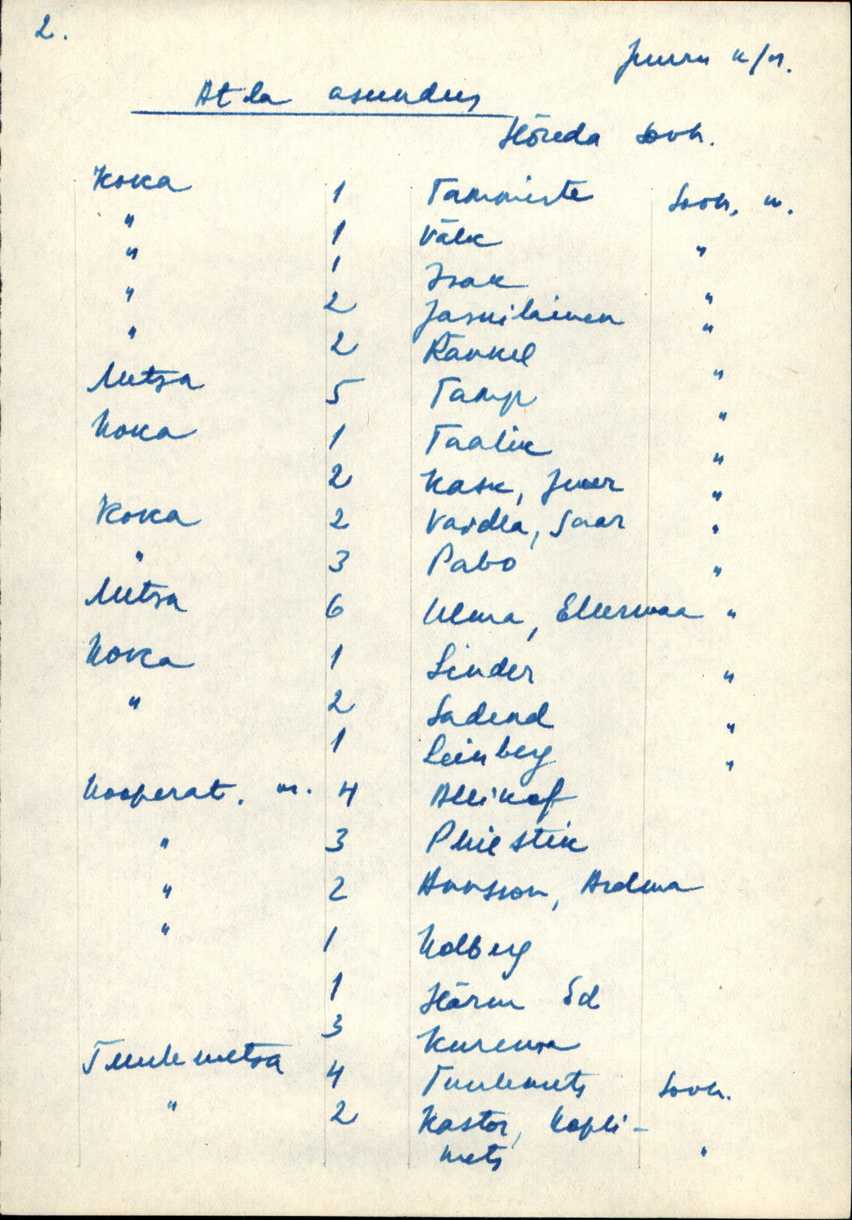 2.
Juuru k/n.
Atla asundus
Hõreda sovh.
Koka 1 Tammiste Sovh. m.
" 1 Välk "
" 1 Isak "
" 2 Jaskilainen "
" 2 Rankel "
Metsa 5 Tamp "
Koka 1 Taalik "
2 Kask, Juur "
Koka 2 Vaidla, Saar "
" 3 Pabo "
Metsa 6 Ulma, Ellermaa "
Koka 1 Linder "
" 2 Sadend "
1 Leinberg "
Kooperat. m. 4 Allikof
" 3 Philstik
" 2 Annsson, Ardma
" 1 Kolberg
1 Härm Ed
3 Kurema
Tuulemetsa 4 Tuulemets Sovh.
" 2 Kastor, Kopli-
mets "